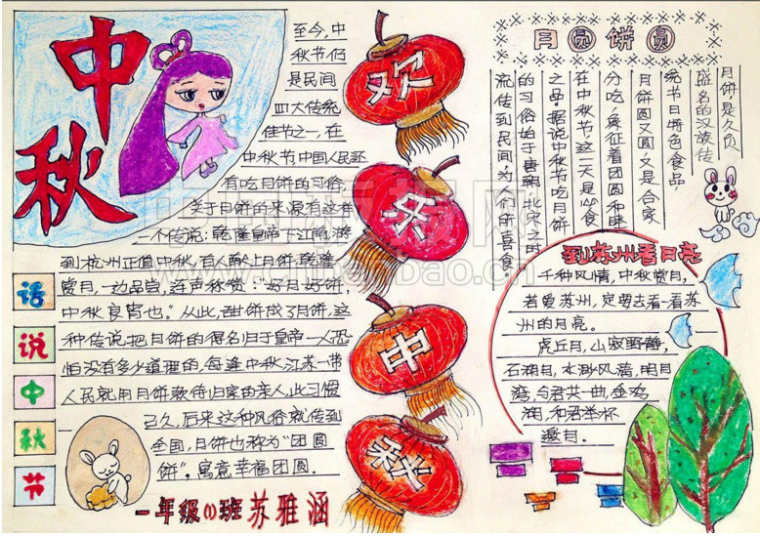 中秋
至今,中
秋节仍
是民间
四大传统
佳节之一,在
中秋节中国人民还
有吃月饼的习俗
关于月饼的来源有这样
一个传说:乾隆皇帝下江南游
到杭州正值中秋,有人献上月饼,乾隆
赏月,一边品尝,连声称赞:“好月好饼,
中秋良宵也”从此,甜饼成了月饼,这
种传说把月饼的得名归于皇帝一人恐
怕没有多少道理的,每逢中秋,江苏一带
人民就用月饼款待归家的亲人,此习惯
已久,后来这种风俗就传到
全国,月饼也称为“团圆
饼”,寓意幸福团圆.
话说中秋节
一年级(1)班苏雅涵
欢
乐
中
秋
月圆饼圆
月饼是久负
盛名的汉族传
统节日特色食品,
月饼圆又圆,又是合家
分吃,象征着团圆和睦
在中秋节这一天是必食
之品.据说中秋节吃月饼
的习俗始于唐朝.北宋之时
流传到民间为人们所喜食
到苏州看月亮
千种风情,中秋赏月,
若爱苏州,定要去看一看苏
州的月亮。
虎丘月,山寂静,
石湖月,水渺风清,明月
湾,与君共一曲,金鸡
湖,和君举杯
邀月.